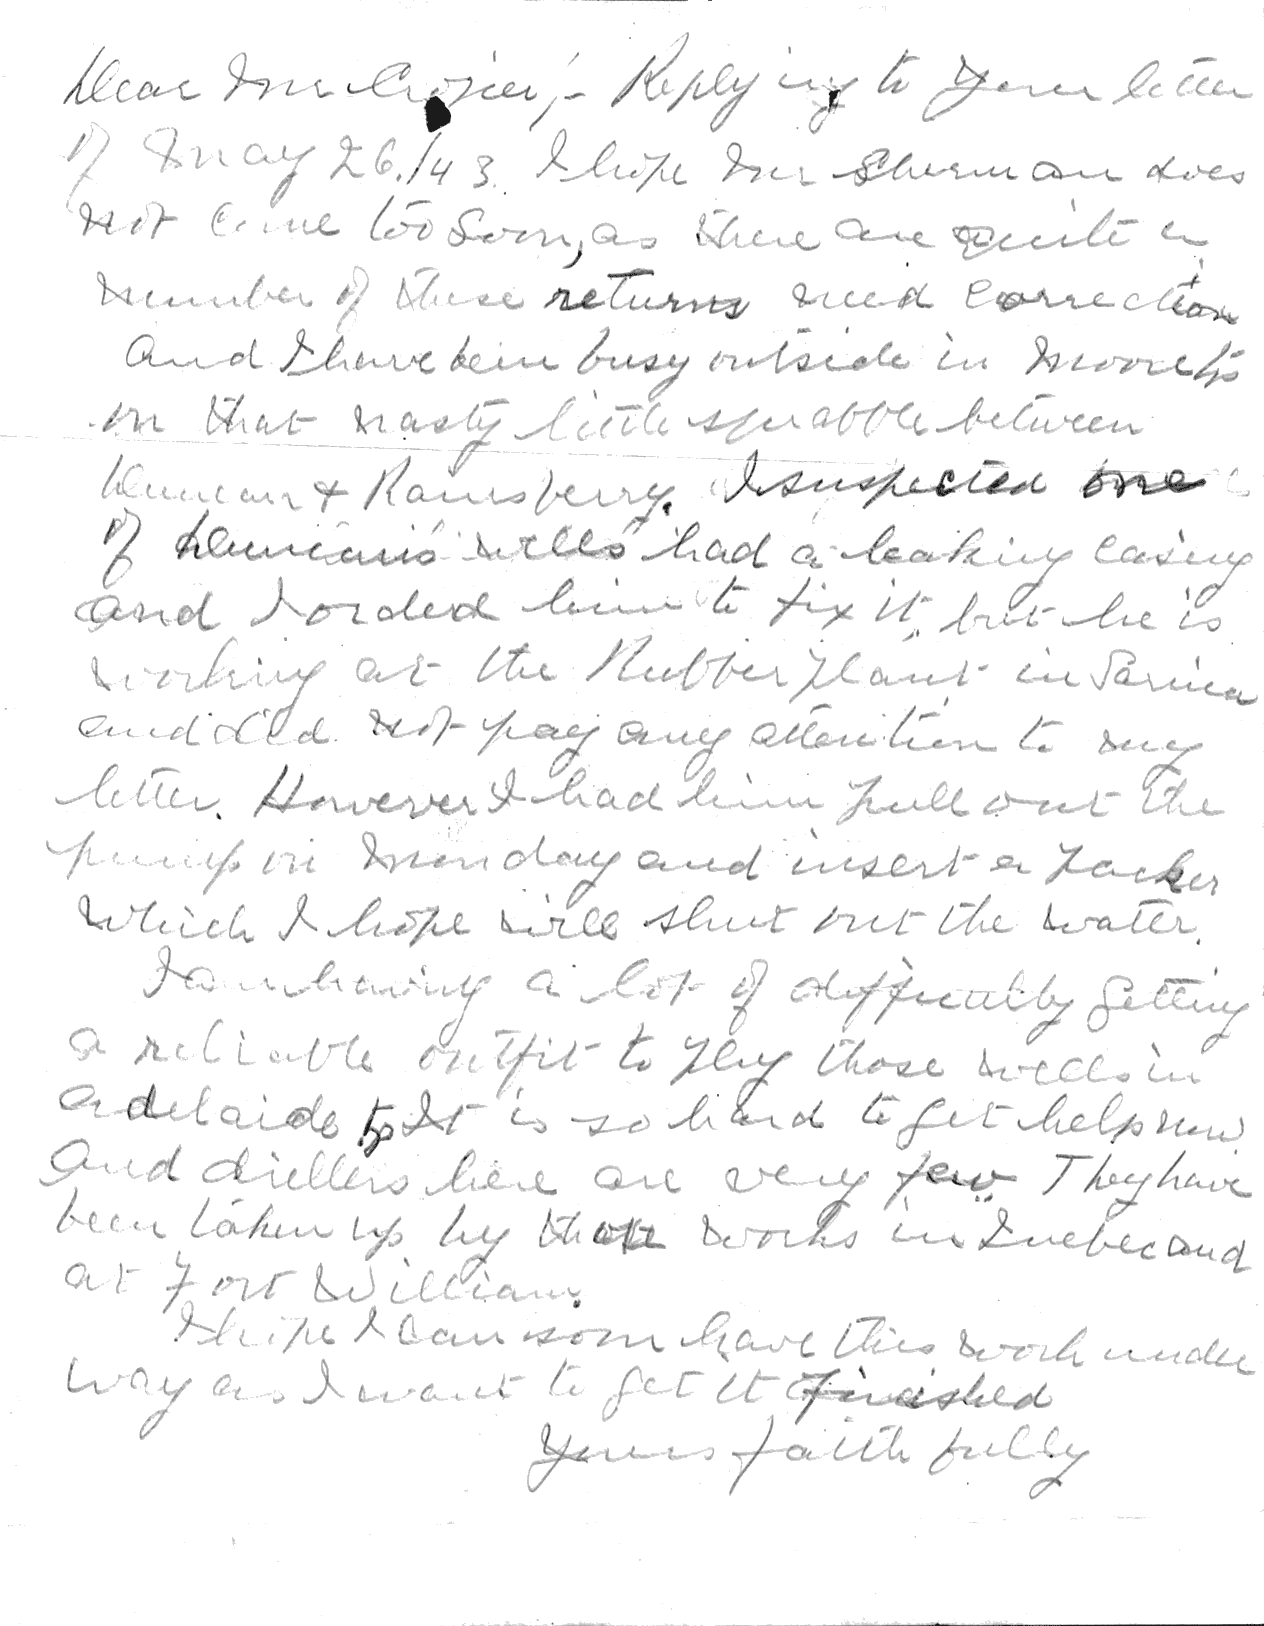 Dear Mr Crozier;- Replying to your letter
of May 26./43. I hope Mr Sherman does
not come too soon, as there are quite a
number of these returns need correction
and I have been busy outside in Moore tp
on that nasty little squabble between
Duncan & Ramsberry. I suspected one
of Duncan's wells had a leaking casing
and I orded him to fix it, but he is
working at the Rubber plant in Sarnia
and did not pay any attention to my
letter. However I had him pull out the
pump on Monday and insert a packer
which I hope will shut out the water.
I am having a lot of difficulty getting
a reliable outfit to plug those wells in
Adelaide tp It is so hard to get help now
and drillers here are very few. They have
been taken up by the works in Quebec and
at Fort William.
I hope I can soon have this work under
way as I want to get it finished
Yours faithfully